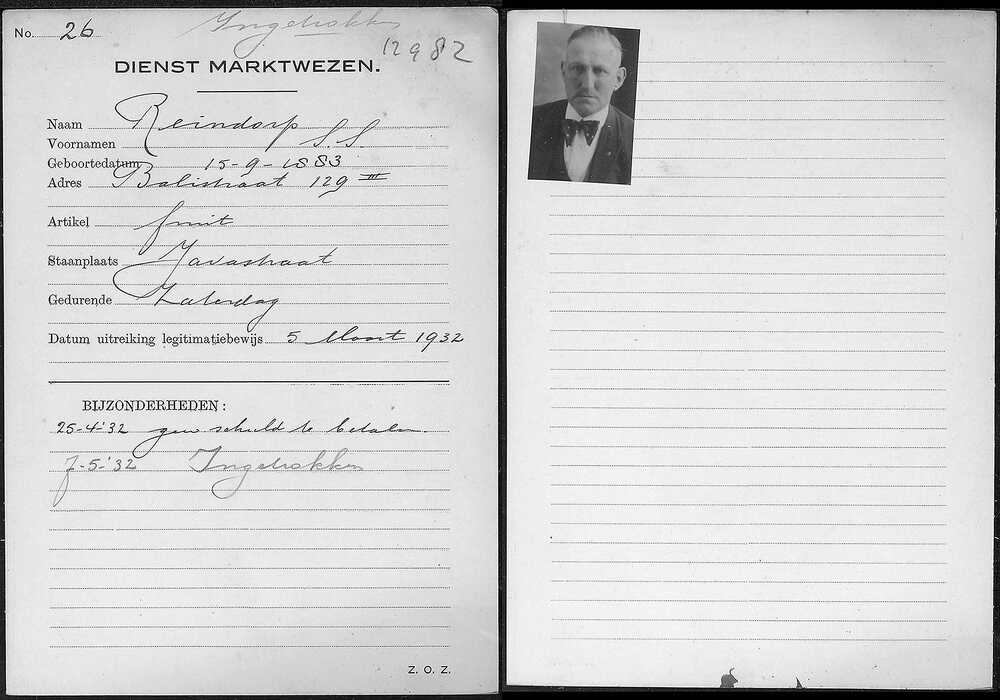 No. 26
Ingetrokken
12982
DIENST MARKTWEZEN.
Naam Reindorp
Voornamen S. S.
Geboortedatum 15-9-1883
Adres Balistraat 129 III
Artikel fruit
Staanplaats Javastraat
Gedurende Zaterdag
Datum uitreiking legitimatiebewijs 5 Maart 1932
BIJZONDERHEDEN:
25-4-'32 gew schuld te betalen.
7-5-'32 Ingetrokken
Z. O. Z.